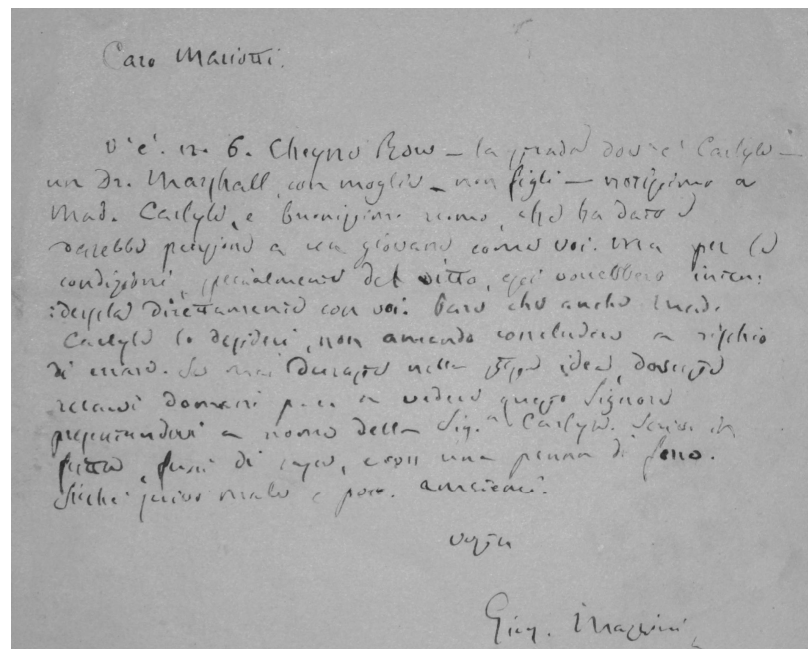 Caro Mariotti.
V'è. n. 6. Cheyne Row — la strada dov'è Carlyle —
un Dr. Marshall, con moglie — non figli — notissimo a
Mad. Carlyle, e buonissimo uomo, che ha dato e
darebbe pensione a un giovane come voi. Ma per le
condizioni, specialmente del vitto, essi vorrebbero inten:
:dersela direttamente con voi. Pare che anche Mad.
Carlyle lo desideri, non amando concludere a rischio
di errare. Se mai duraste nella stessa idea, dovreste
recarvi domani p. m. a vedere questo Signore
presentandovi a nome della Sig.ª Carlyle. Scrivo in
fretta, fuori di casa, e con una penna di ferro.
Sicchè scrivo male e poco. Amatemi.
vostro
Gius. Mazzini